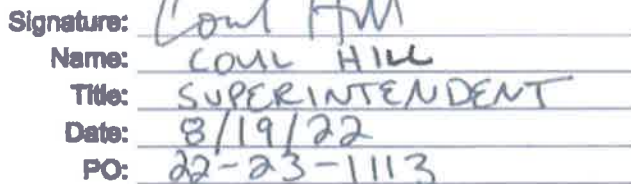 Signature: Coul Hill
Name: COUL HILL
Title: SUPERINTENDENT
Date: 8/19/22
PO: 22-23-1113